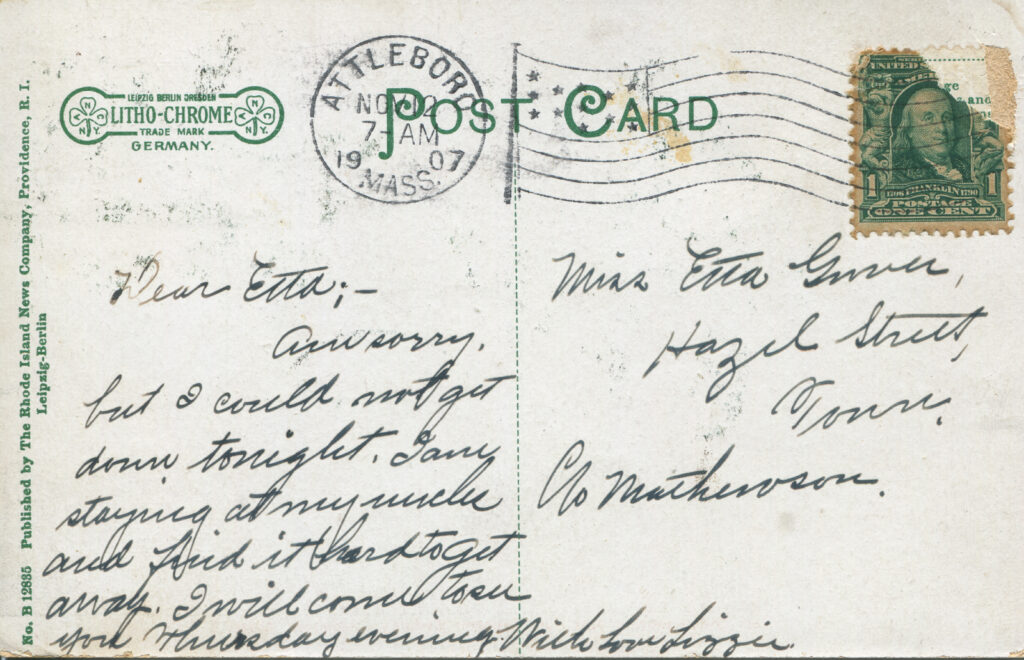 No. B 12835 Published by The Rhode Island News Company, Providence, R. I.
Leipzig-Berlin
LEIPZIG BERLIN DRESDEN
LITHO-CHROME
TRADE MARK
GERMANY.
N N Y
N N Y
POST CARD
ATTLEBORO
NOV 12
7- AM
1907
MASS.
UNITED
ge
and
1 FRANKLIN 1
1706 1790
POSTAGE
ONE CENT
Dear Etta;-
Am sorry,
but I could not get
down tonight. I am
staying at my uncles
and find it hard to get
away. I will come to see
you Thursday evening. With Love Lizzie
Miss Etta Grover,
Hazel Street,
Town.
C/o Mathewson.